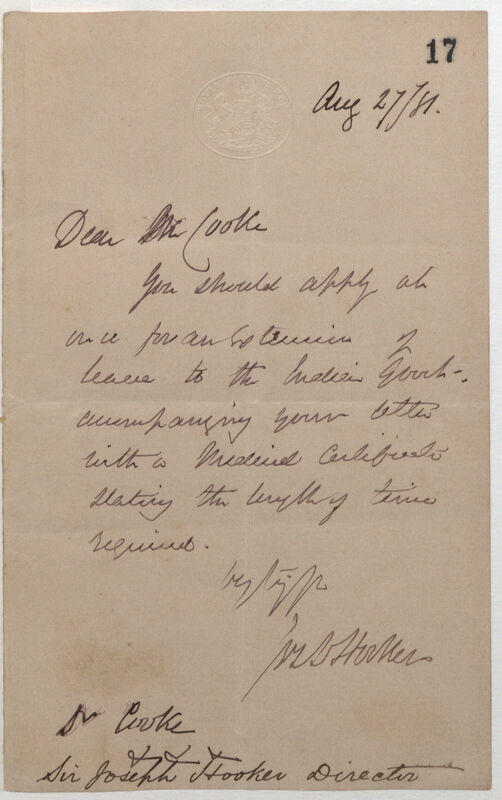 17
Aug 27/81.
Dear Mr Cooke
You should apply at
once for an Extension of
leave to the Indian Govt-.
accompanying your letter
with a Medical Certificate
stating the length of time
required.
Very
Jos D Hooker
Dr Cooke
Sir Joseph Hooker Director